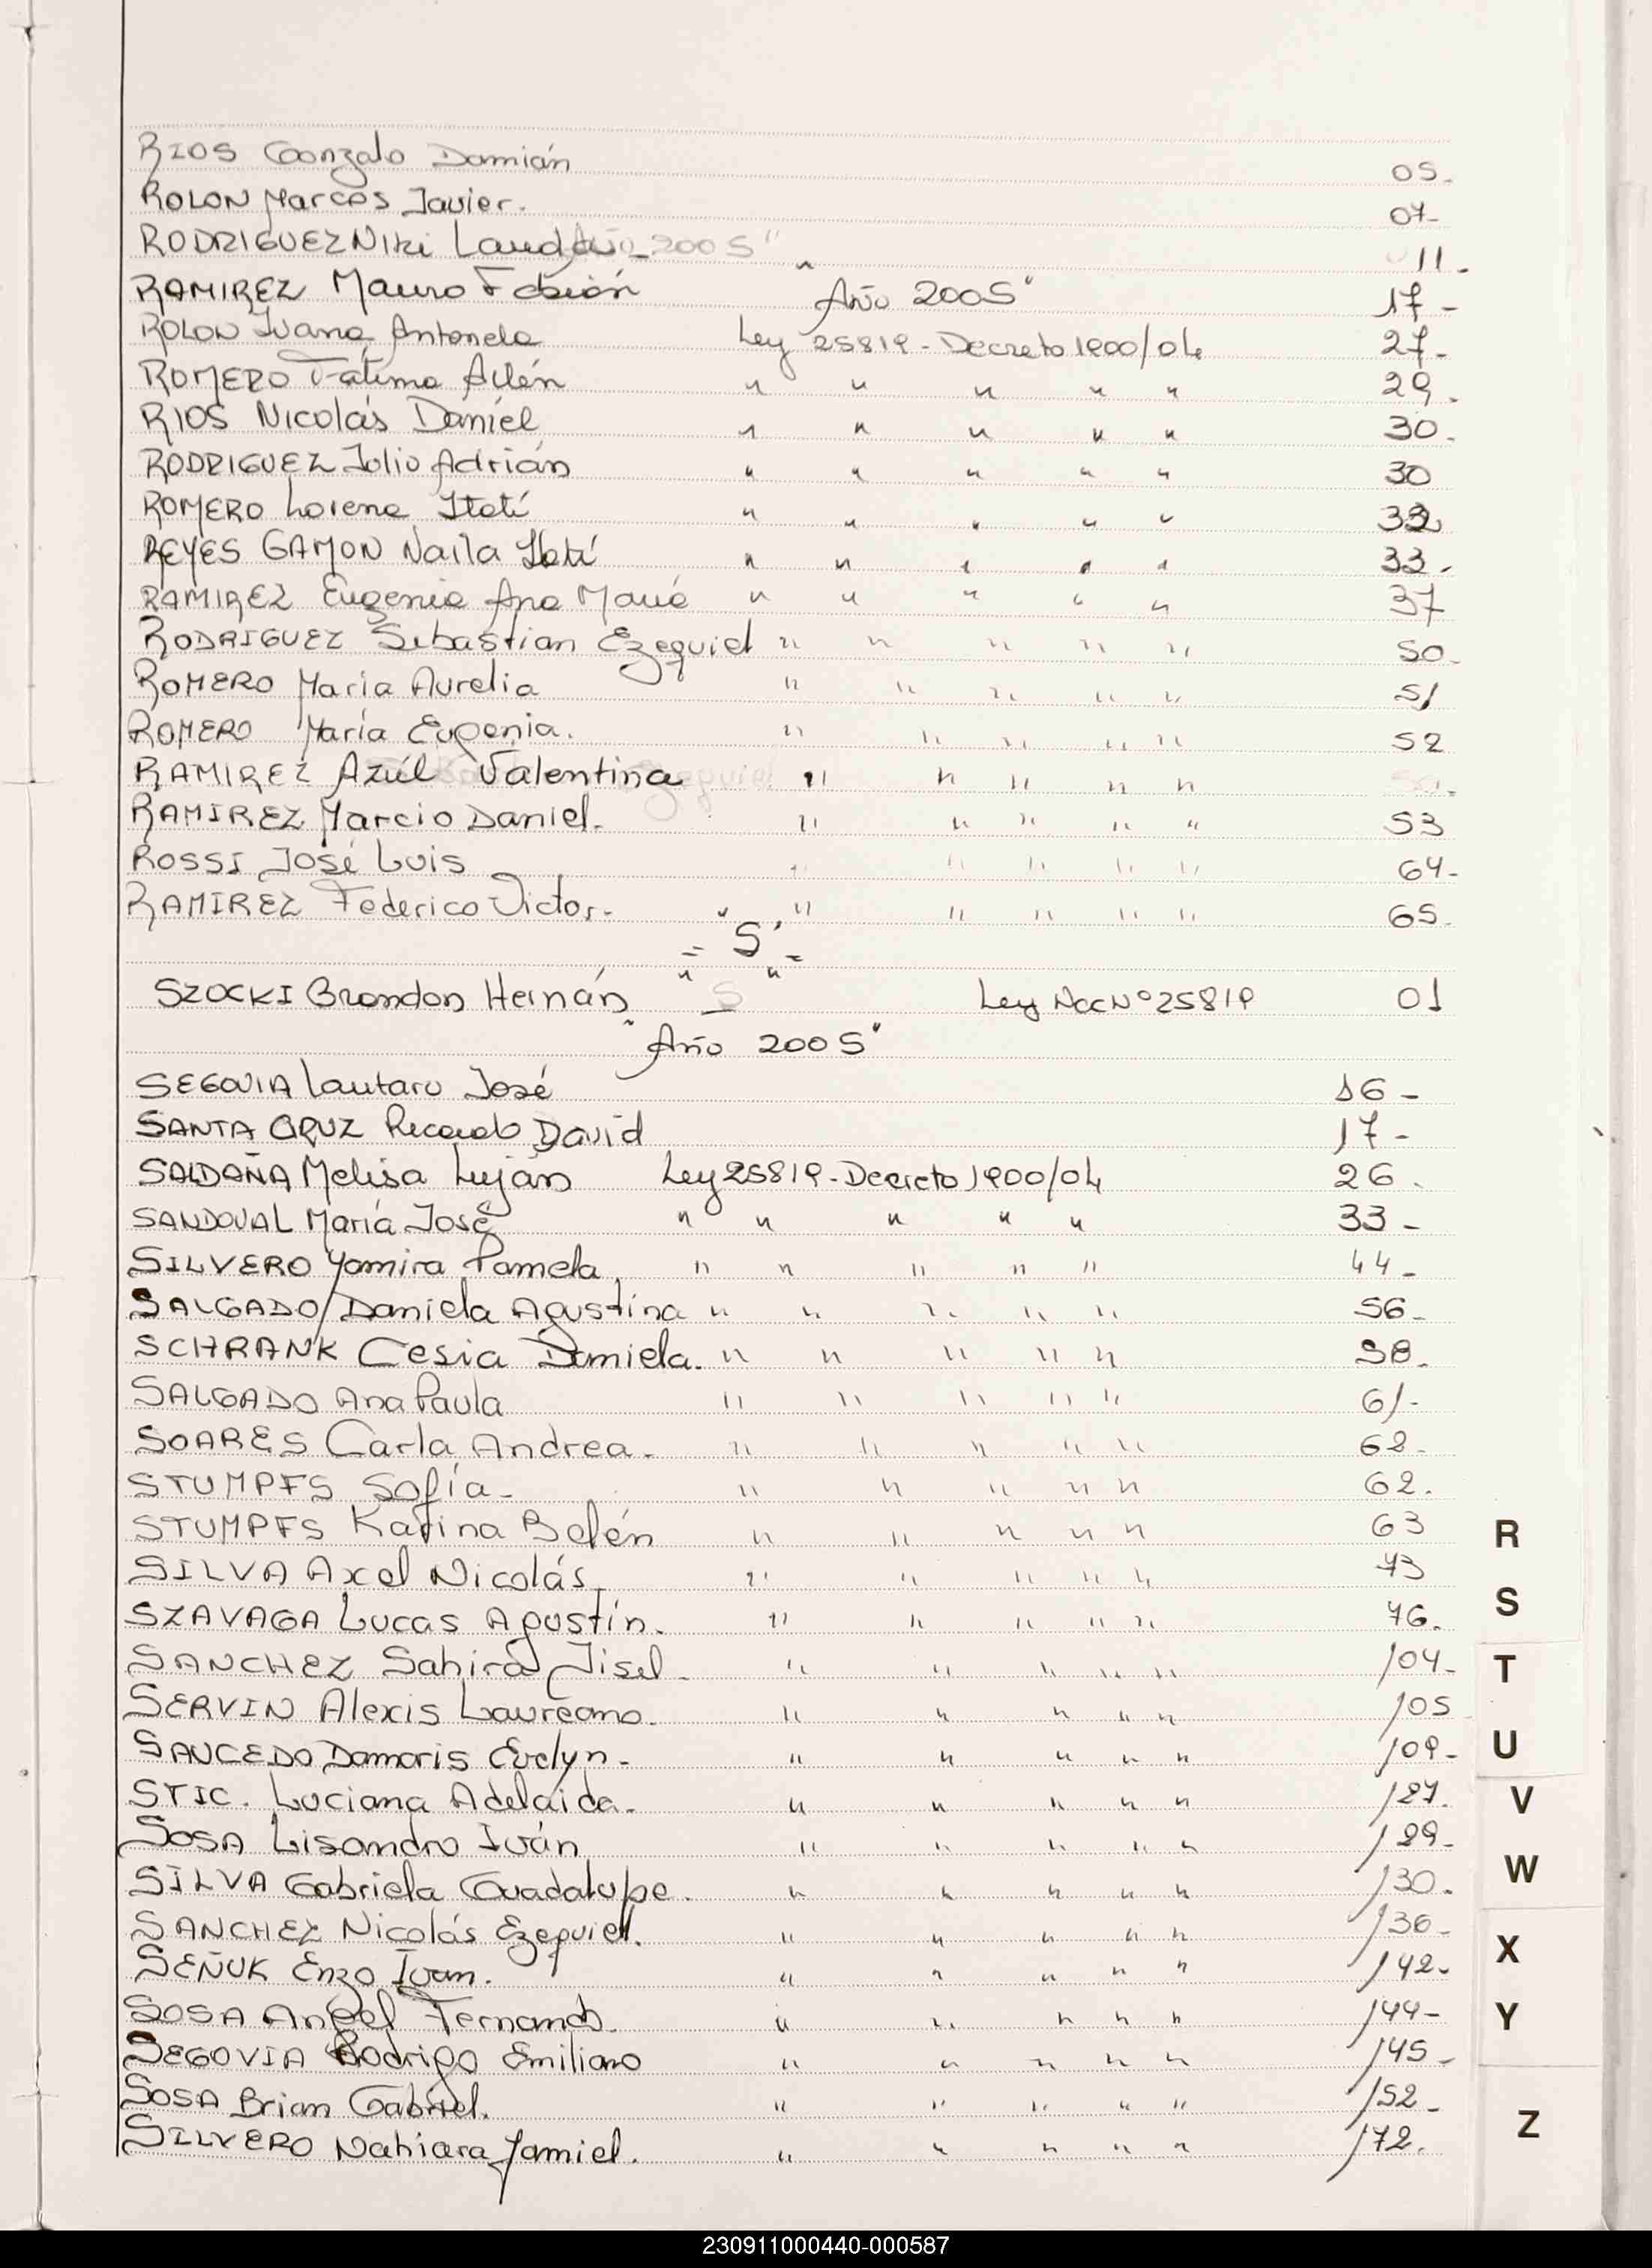 RIOS Gonzalo Damián 05.
ROLON Marcos Javier. 07-
RODRIGUEZ Niki Landa - 11.
RAMIREZ Mauro Fabián "Año 2005" 17-
ROLON Ivana Antonela Ley 25819 - Decreto 1900/04 27-
ROMERO Fátima Ailén " " " " " 29.
RIOS Nicolás Daniel " " " " " 30.
RODRIGUEZ Julio Adrián " " " " " 30
ROMERO Lorena Itatí " " " " " 32
REYES GAMON Naila Itatí " " " " " 33-
RAMIREZ Eugenia Ana María " " " " " 37
RODRIGUEZ Sebastian Ezequiel " " " " " 50-
ROMERO María Aurelia " " " " " 51
ROMERO María Eugenia. " " " " " 52
RAMIREZ Azúl Valentina " " " " "
RAMIREZ Marcio Daniel. " " " " " 53
ROSSI José Luis " " " " " 64-
RAMIREZ Federico Victor. " " " " " 65.
= "S" =
SZOCKI Brandon Hernán Ley Nac Nº 25819 01
"Año 2005"
SEGOVIA Lautaro José 16-
SANTA CRUZ Ricardo David 17-
SALDAÑA Melisa Luján Ley 25819 - Decreto 1900/04 26.
SANDOVAL María José " " " " " 33-
SILVERO Yamira Pamela " " " " " 44-
SALGADO Daniela Agustina " " " " " 56-
SCHRANK Cesia Damiela. " " " " " 58.
SALGADO Ana Paula " " " " " 61-
SOARES Carla Andrea. " " " " " 62-
STUMPFS Sofía- " " " " " 62.
STUMPFS Karina Belén " " " " " 63
SILVA Axel Nicolás " " " " " 73
SZAVAGA Lucas Agustín. " " " " " 76.
SANCHEZ Sahira Jisel- " " " " " 104-
SERVIN Alexis Laureano. " " " " " 105
SAUCEDO Damaris Evelyn- " " " " " 109-
STIC. Luciana Adelaida. " " " " " 127.
SOSA Lisandro Iván " " " " " 129-
SILVA Gabriela Guadalupe. " " " " " 130.
SANCHEZ Nicolás Ezequiel. " " " " " 136-
SEÑUK Enzo Ivan. " " " " " 142-
SOSA Angel Fernando. " " " " " 144-
SEGOVIA Rodrigo Emiliano " " " " " 145-
SOSA Brian Gabriel. " " " " " 152-
SILVERO Nahiara Jamiel. " " " " " 172.
R
S
T
U
V
W
X
Y
Z
230911000440-000587